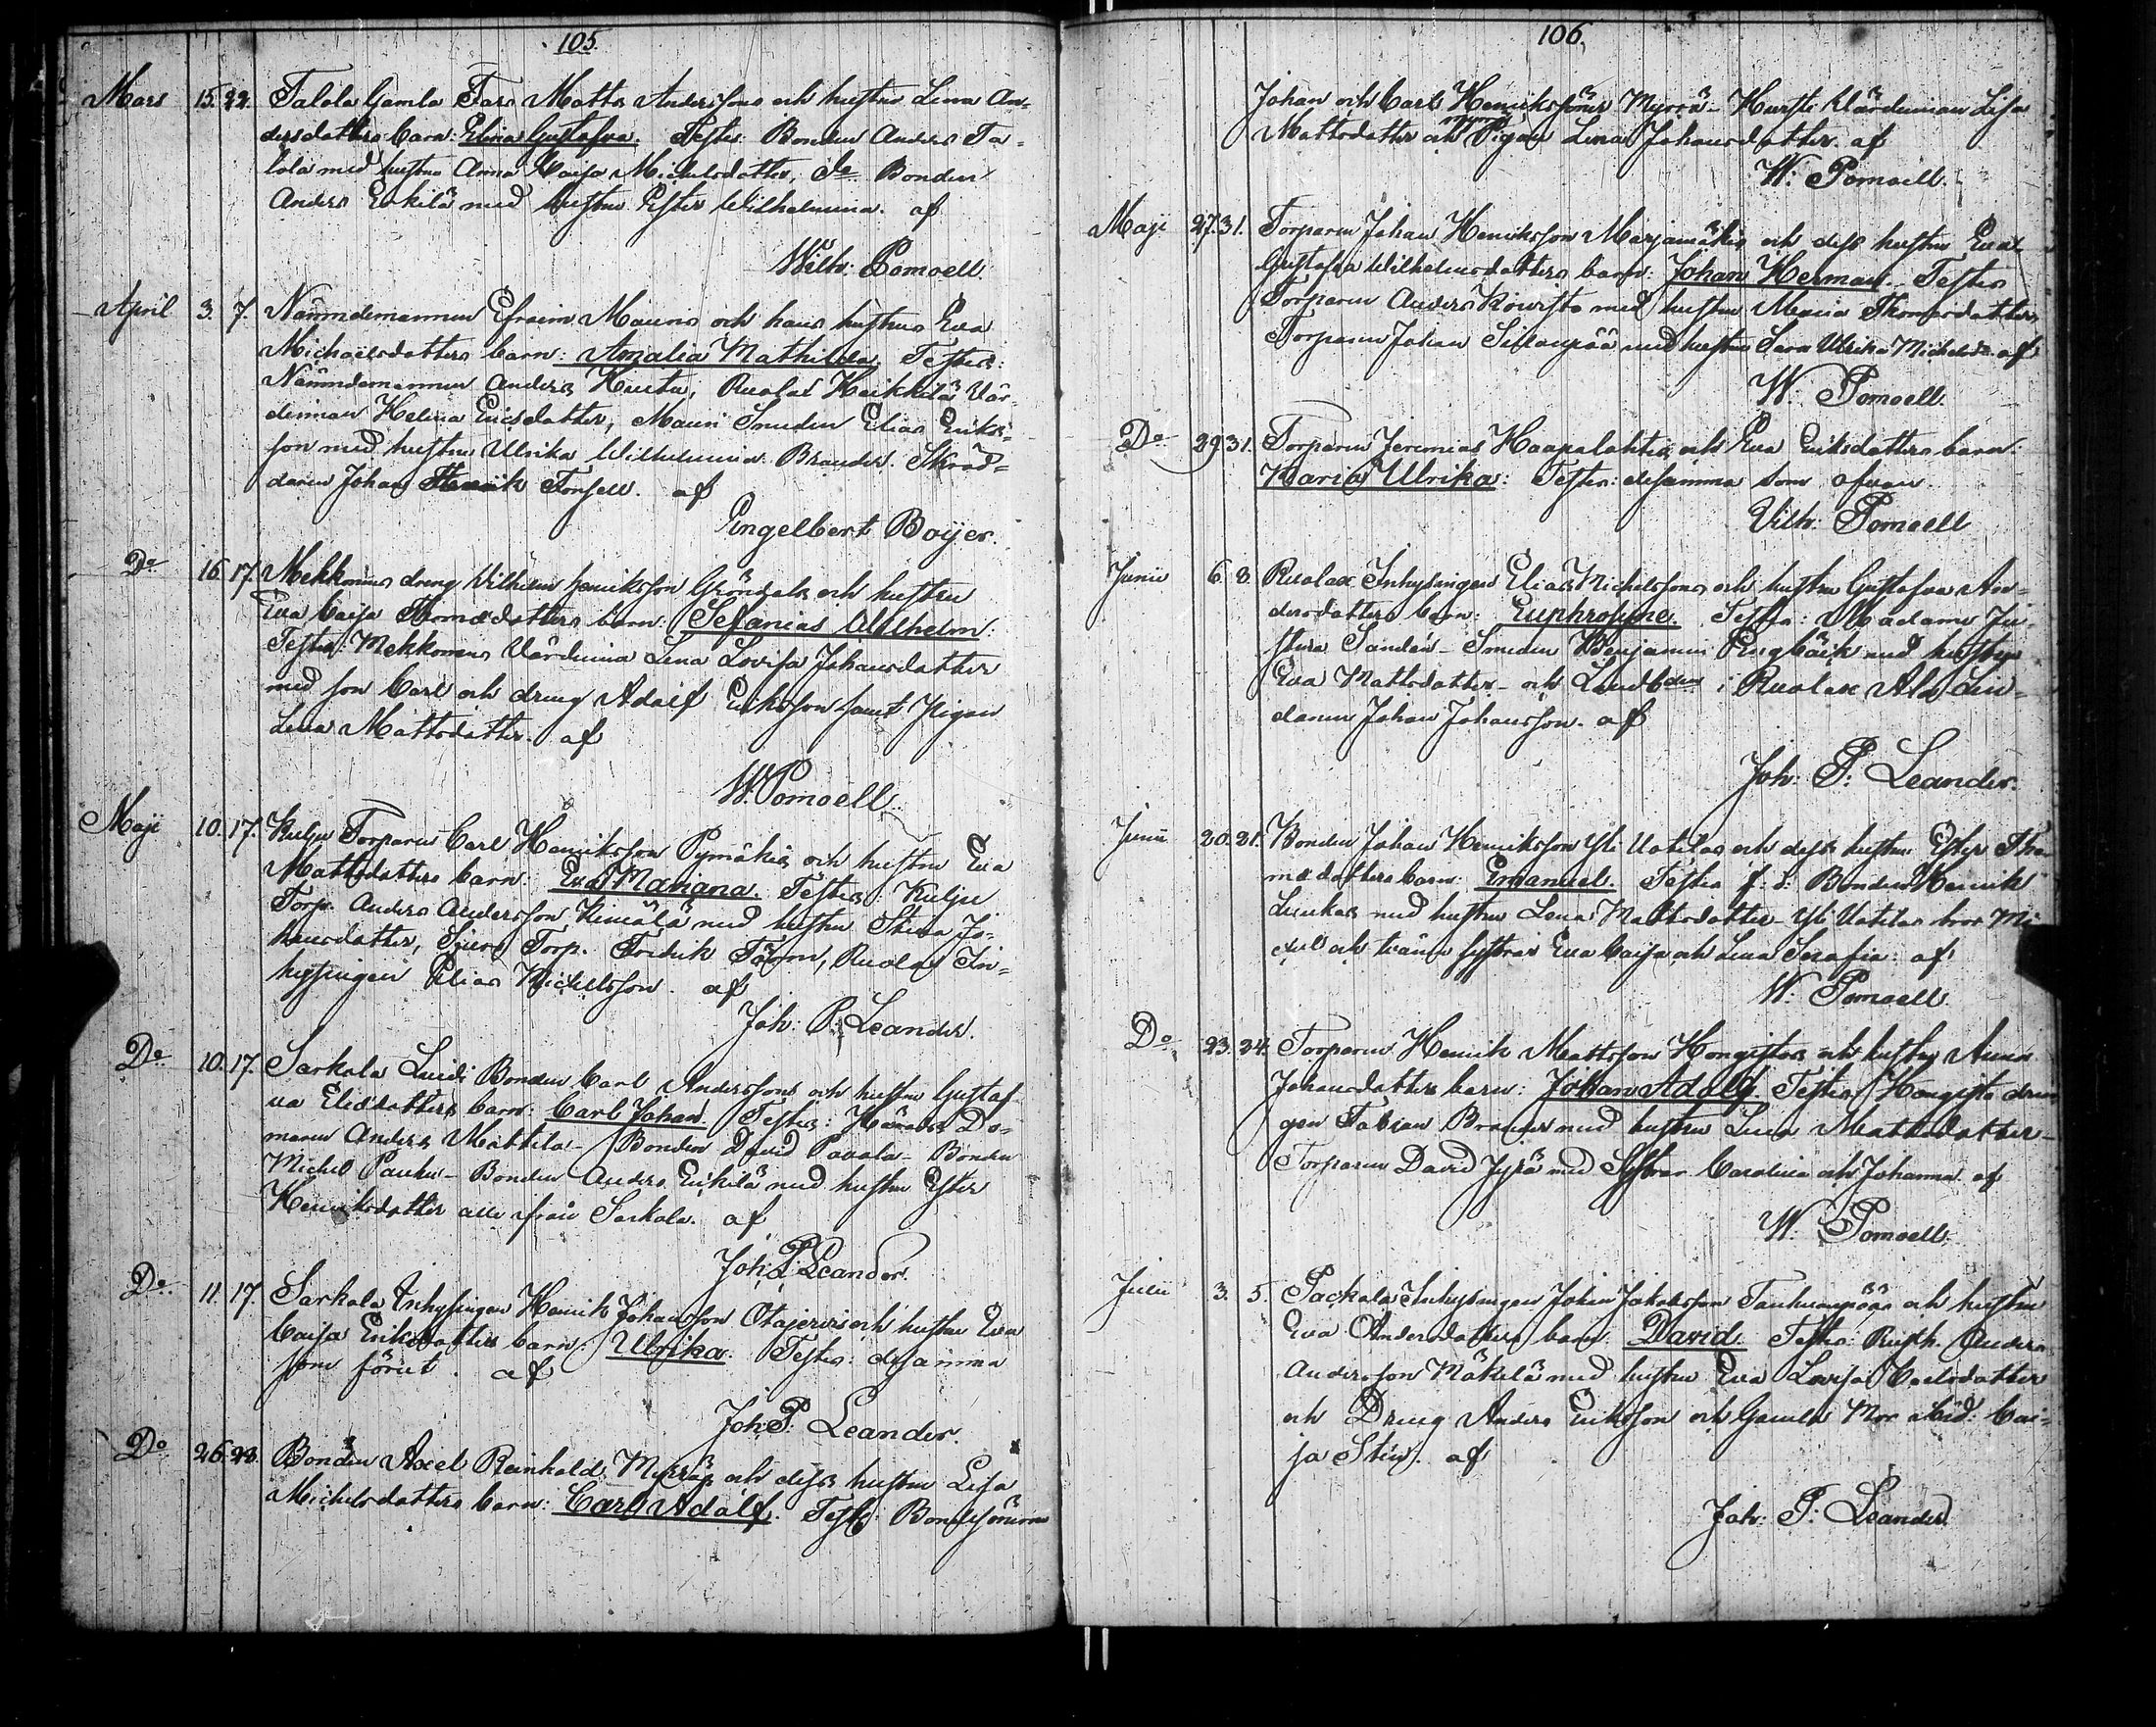 105.
Mars 15. 22. Talola Gamla Fars Matts Anderssons och hustrus Lena An-
dersdotters barn: Elina Gustafva. Testes: Bonden Anders Ta-
lola med hustru Anna Caisa Michelsdotter, Bonden
Anders Erkilä med hustru Ester Wilhelmina. af
Wilh: Pomoell.
April 3. 7. Nämndemannen Efraim Mauris och hans hustrus Eva
Michaëlsdotters barn: Amalia Mathilda. Testes:
Nämndemannen Anders Knuutu, Ruolax Heikkilä Vär-
dinnan Helena Ericsdotter, Mauri Smeden Elias Eriks-
son med hustru Ulrika Wilhelmina Brander. Skräd-
daren Johan Henrik Forsell. af
Engelbert Boijer.
Do 16. 17. Mekkomes dreng Wilhelm Henriksson Gröndals och hustru
Eva Caisa Thomædotters barn: Sefanias Wilhelm.
Testes: Mekkomes Värdinna Lena Lovisa Johansdotter
med son Carl och dreng Adolf Eriksson samt Pigan
Lena Mattsdotter. af
W. Pomoell.
Maji 10. 17. Kulju Torparen Carl Henriksson Pymäkis och hustru Eva
Mattsdotters barn: Eva Mariana. Testes: Kulju
Torp. Anders Andersson Kimälä med hustru Stina Jo-
hansdotter, Torp. Fredrik Törn, Ruolax In-
hysingen Elias Michelsson. af
Joh: P: Leander.
Do 10. 17. Sarkola Luidi Bonden Carl Anderssons och hustru Gustaf-
va Eliædotters barn: Carl Johan. Testes: Härads Do-
maren Anders Mattila - Bonden David Pavola - Bonden
Michel Pauhu - Bonden Anders Erkilä med hustru Ester
Henriksdotter alla ifrån Sarkola. af
Joh: P: Leander.
Do 11. 17. Sarkola Inhysingen Henrik Johansson Otajervis och hustru Eva
Caisa Eriksdotters barn: Ulrika. Testes: desamma
som förut. af
Joh: P: Leander.
Do 26. 28. Bonden Axel Reinhold Myrräs och dess hustru Lisa
Michelsdotters barn: Carl Adolf. Testes: Bondesönerne
106.
Johan och Carl Henrikssöner Myrrä - Värdinnan Lisa
Mattsdotter och Pigan Lena Johansdotter. af
W: Pomoell.
Maji 27. 31. Torparen Johan Henriksson Marjamäkis och dess hustru Eva
Gustafva Wilhelmsdotters barn: Johan Herman. Testes
Torparen Anders Koivisto med hustru Maria Thomasdotter,
Torparen Johan Sillanpää med hustru Sara Ulrika Michelsdr. af
W. Pomoell.
Do 29. 31. Torparen Jeremias Haapalahtis och Eva Eriksdotters barn:
Maria Ulrika: Testes: desamma som ofvan.
Vilh: Pomoell
Junii 6. 8. Ruolax Inhysingen Elias Michelssons och hustru Gustafva An-
dersdotters barn: Euphrosyne. Testes: Madame Ju-
stina Sandén - Smeden Benjamin Engbäck med hustru
Eva Mattsdotter - och Landbden i Ruolax Ala Lin-
daren Johan Johansson. af
Joh: P: Leander.
Junii 20. 21. Bonden Johan Henriksson Yli Uotilas och dess hustru Ester Tho-
mædotters barn: Emanuel. Testes f. d. Bonden Henrik
Luukas med hustru Lena Mattsdotter - Yli Uotilas bror Mi-
chel och tvänne systrar Eva Caisa och Lena Serafia: af
W: Pomoell
Do 23. 24. Torparen Henrik Mattsson Hongistos och hustru Anna
Johansdotters barn: Johan Adolf. Testes: Hongisto dren-
gen Fabian Brander med hustru Lena Mattsdotter -
Torparen David Jyrä med Systrar Carolina och Johanna. af
W. Pomoell.
Julii 3. 5. Packala Inhysingen Johan Jakobsson Tanhuanpääs och hustru
Eva Andersdotters barn David. Testes: Rusth. Anders
Andersson Mäkelä med hustru Eva Lovisa Carlsdotter
och Dreng Anders Eriksson och Gamla Mor ibid: Cai-
sa Stina. af
Joh: P: Leander.